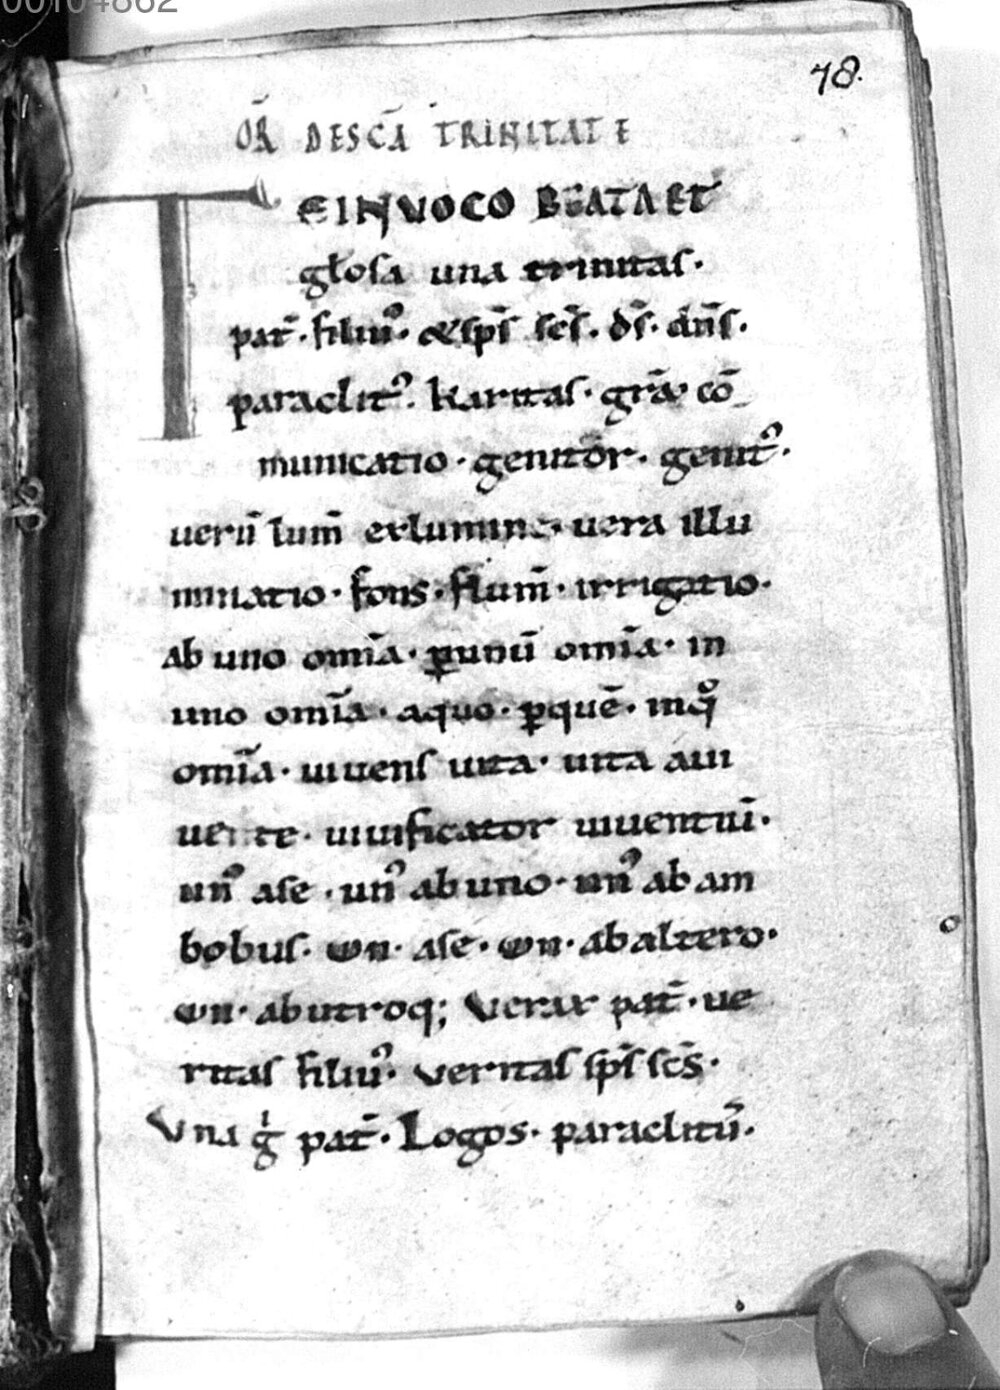 00104862
78.
OR̄ DESCĀ TRINITATE
TEINVOCO BEATA ET
gl̄osa una trinitas·
pat̄· filiuꝰ· &sp̄s sc̄s· ds̄· dn̄s·
paraclitꝰ· karitas· grā· cō
municatio· genitor· genitꝰ·
uerū lum̄ exlumine· uera illu
minatio· fons· flum̄· irrigatio·
Ab uno om̄ia· ꝑunū om̄ia· in
uno om̄ia· aquo· ꝑquē· inqͦ
om̄ia· uiuens uita· uita aui
uente· uiuificator uiuentiū·
unꝰ ase· unꝰ abuno· unꝰ abam
bobus· ωn· ase· ωn· abaltero·
ωn· abutroq; Verax pat̄· ue
ritas filiuꝰ· veritas sp̄s sc̄s·
Una gͥ pat̄· Logos· paraclitū·